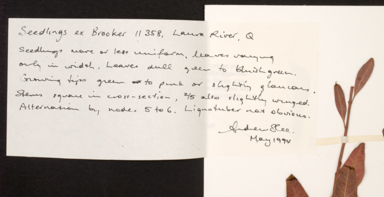 Seedlings ex Brooker 11358, Laura River, Q
Seedlings more or less uniform, leaves varying
only in width. Leaves dull green to bluish green.
Growing tips green to pink or slightly glaucous.
Stems square in cross-section, also slightly winged.
Alternation by nodes 5 to 6. Lignotuber not obvious.
Andrew
May 1994